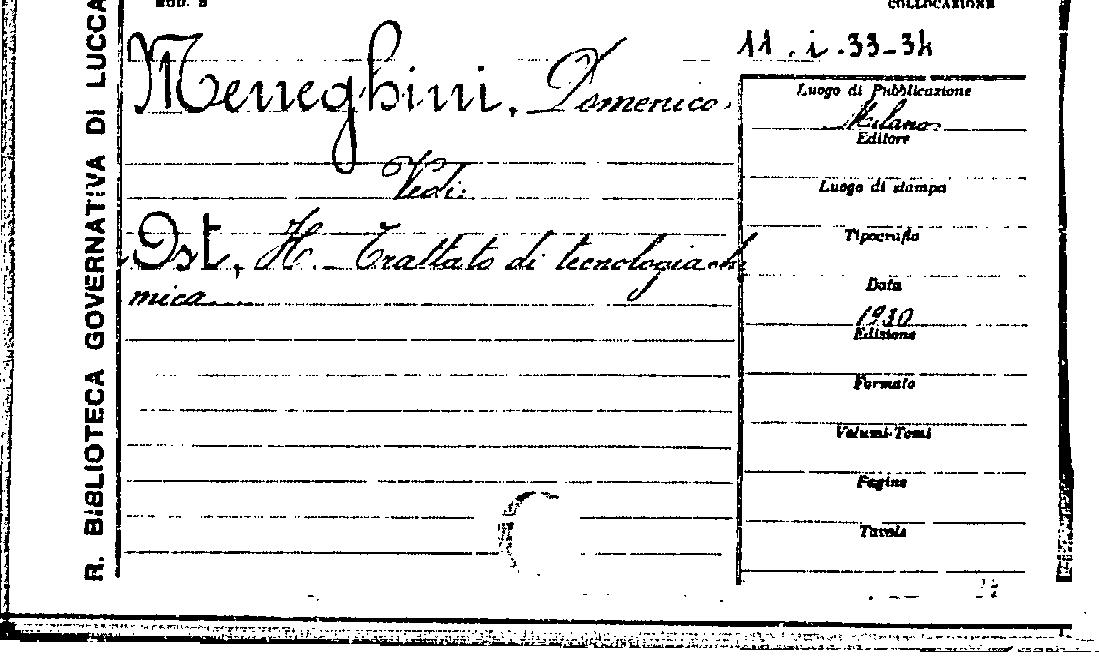 MOD. B
COLLOCAZIONE
R. BIBLIOTECA GOVERNATIVA DI LUCCA
11.i.33-34
Meneghini, Domenico.
Vedi:
Ost, H. - Trattato di tecnologia chi
mica....
Luogo di Pubblicazione
Milano
Editore
Luogo di stampa
Tipografia
Data
1930
Edizione
Formato
Volumi-Tomi
Pagine
Tavole